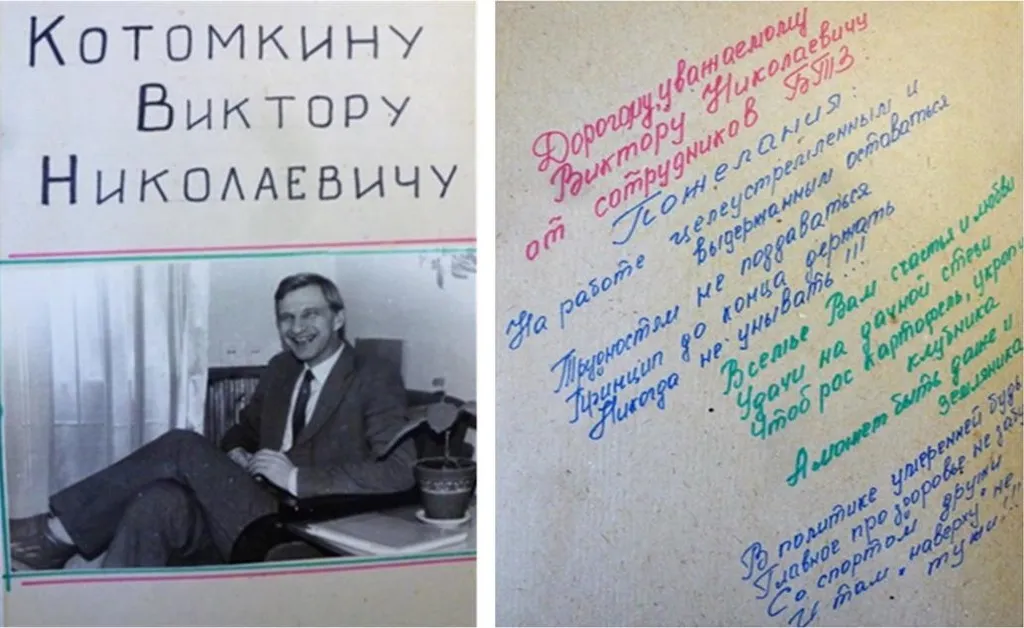 Котомкину
Виктору
Николаевичу
Дорогому, уважаемому
Виктору Николаевичу
от сотрудников БТЗ
Пожелания:
На работе целеустремленным и
выдержанным оставаться
Трудностям не поддаваться
Принцип до конца держать
Никогда не унывать!!!
В семье Вам счастья и любви
Удачи на дачной стези
Чтоб рос картофель, укроп и
клубника
А может быть даже и
земляника
В политике умеренней будь
Главное про здоровье не забу
Со спортом дружи
И там "наверху" не
тужи!!!